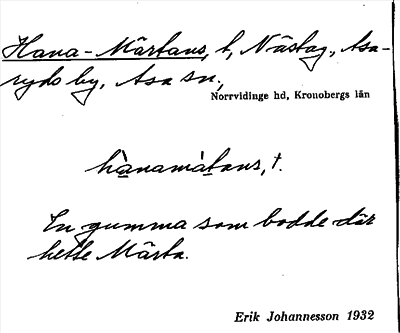 Hana-Märtans, t, Nästag., Asa-
ryds by, Asa sn.,
Norrvidinge hd, Kronobergs län
hànamàtans, t.
En gumma som bodde där
hette Märta.
Erik Johannesson 1932